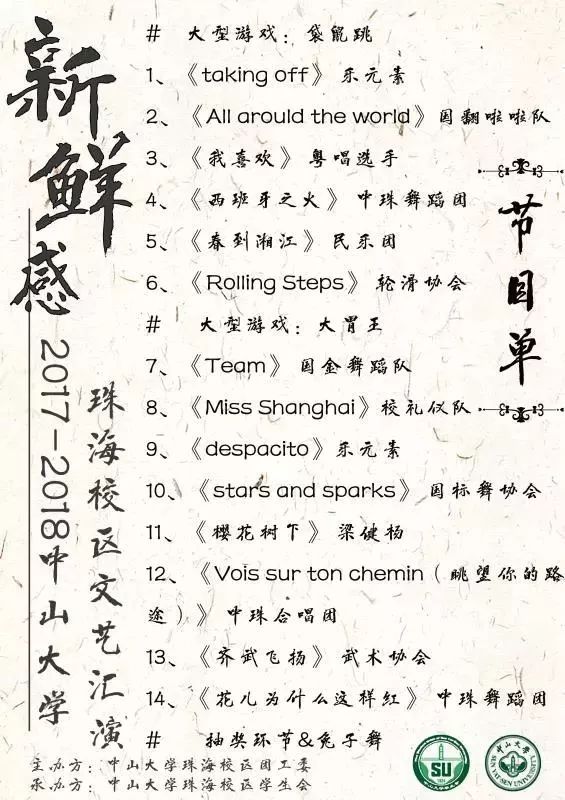 新鲜感
2017-2018中山大学
珠海校区文艺汇演
节目单
# 大型游戏：袋鼠跳
1、《taking off》乐元素
2、《All arould the world》国翻啦啦队
3、《我喜欢》粤唱选手
4、《西班牙之火》中珠舞蹈团
5、《春到湘江》民乐团
6、《Rolling Steps》轮滑协会
# 大型游戏：大胃王
7、《Team》国金舞蹈队
8、《Miss Shanghai》校礼仪队
9、《despacito》乐元素
10、《stars and sparks》国标舞协会
11、《樱花树下》梁健杨
12、《Vois sur ton chemin（眺望你的路
途）》中珠合唱团
13、《齐武飞扬》武术协会
14、《花儿为什么这样红》中珠舞蹈团
# 抽奖环节&兔子舞
主办方：中山大学珠海校区团工委
承办方：中山大学珠海校区学生会
SU
中山大学
SUN YAT-SEN UNIVERSITY